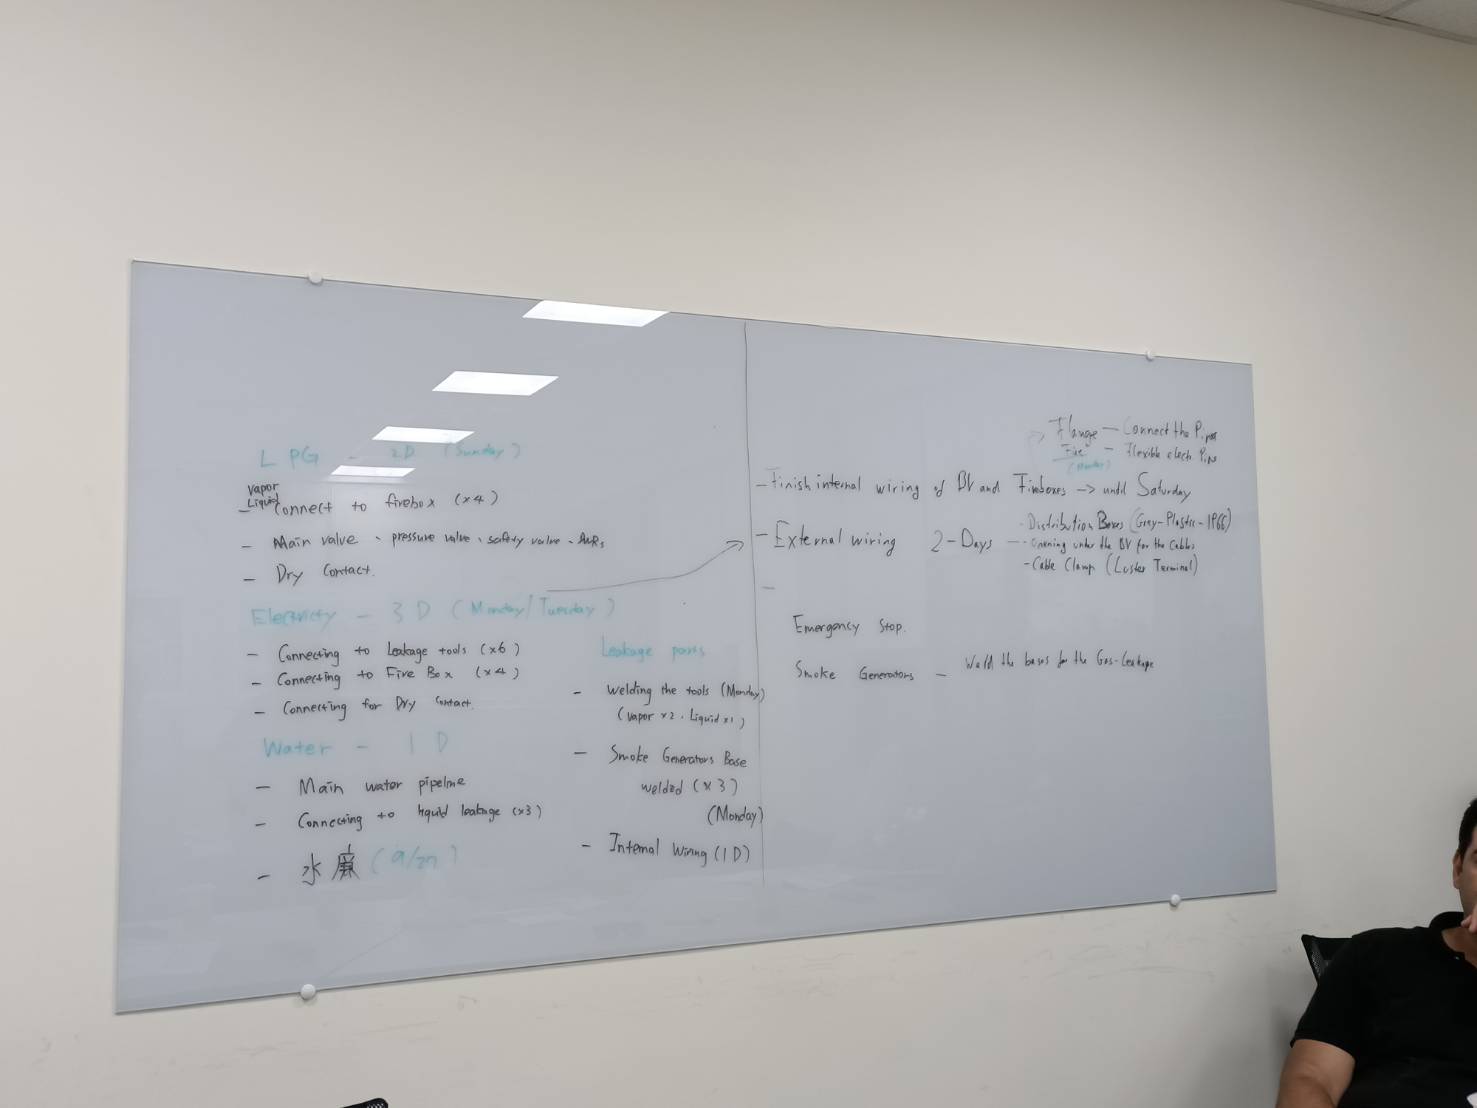 LPG - 2D (Sunday)
Vapor
Liquid
- Connect to firebox (x4)
- Main valve、pressure valve、safety valve、
- Dry Contact.
Electricity - 3D (Monday/Tuesday)
- Connecting to Leakage tools (x6)
- Connecting to Fire Box (x4)
- Connecting for Dry Contact.
Water - 1D
- Main water pipeline
- Connecting to liquid leakage (x3)
- 水 (9/27)
Leakage parts
- Welding the tools (Monday)
(Vapor x2、Liquid x1)
- Smoke Generators Base
welded (x3)
(Monday)
- Internal Wiring (1D)
Flange - Connect the Pipes
- Flexible elect.
(Monday)
- Finish internal wiring of BV and Fireboxes → until Saturday
- External wiring 2-Days
- Distribution Boxes (Grey-Plastic-IP66)
- Opening under the BV for the Cables
- Cable Clamp (Luster Terminal)
-
Emergency Stop.
Smoke Generators - Weld the bases for the Gas-Leakage